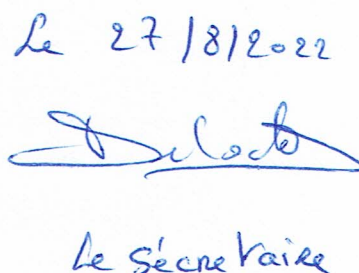 Le 27/8/2022
Le Sécretaire